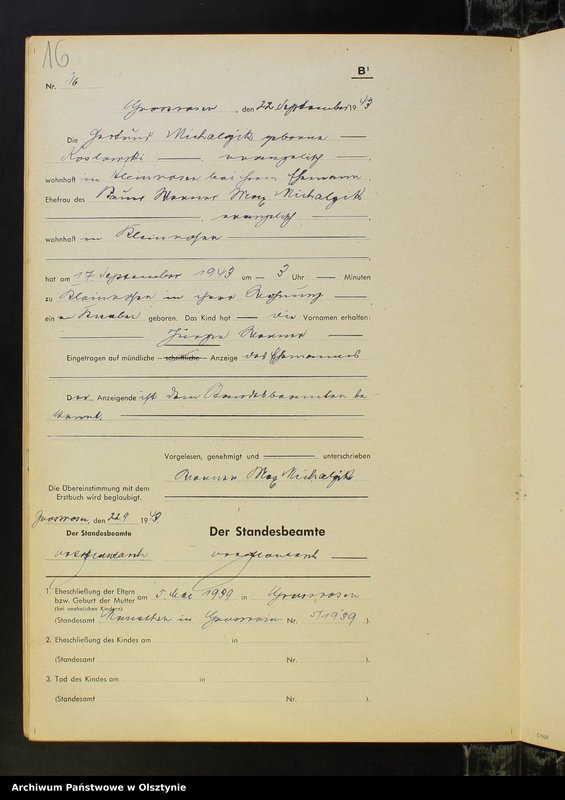 16
B¹
Nr. 16
Grossrosen, den 22. September 1943
Die Gertrud Michalzik geborene
Koslowski, evangelisch,
wohnhaft in Kleinrosen bei ihrem Ehemann,
Ehefrau des Bauer Werner Max Michalzik
, evangelisch,
wohnhaft in Kleinrosen
hat am 17. September 1943 um 3 Uhr Minuten
zu Kleinrosen in ihrer Wohnung
ein en Knaben geboren. Das Kind hat die Vornamen erhalten:
Jürgen Werner
Eingetragen auf mündliche – schriftliche – Anzeige des Ehemannes
Der Anzeigende ist dem Standesbeamten be
kannt.
Vorgelesen, genehmigt und unterschrieben
Werner Max Michalzik
Die Übereinstimmung mit dem
Erstbuch wird beglaubigt.
Grossrosen, den 22.9. 1943
Der Standesbeamte
Der Standesbeamte
1. Eheschließung der Eltern
bzw. Geburt der Mutter am 5. Mai 1939 in Grossrosen
(bei unehelichen Kindern)
(Standesamt in Grossrosen Nr. 5/1939 ).
2. Eheschließung des Kindes am in
(Standesamt Nr. ).
3. Tod des Kindes am in
(Standesamt Nr. ).
C/101
Archiwum Państwowe w Olsztynie